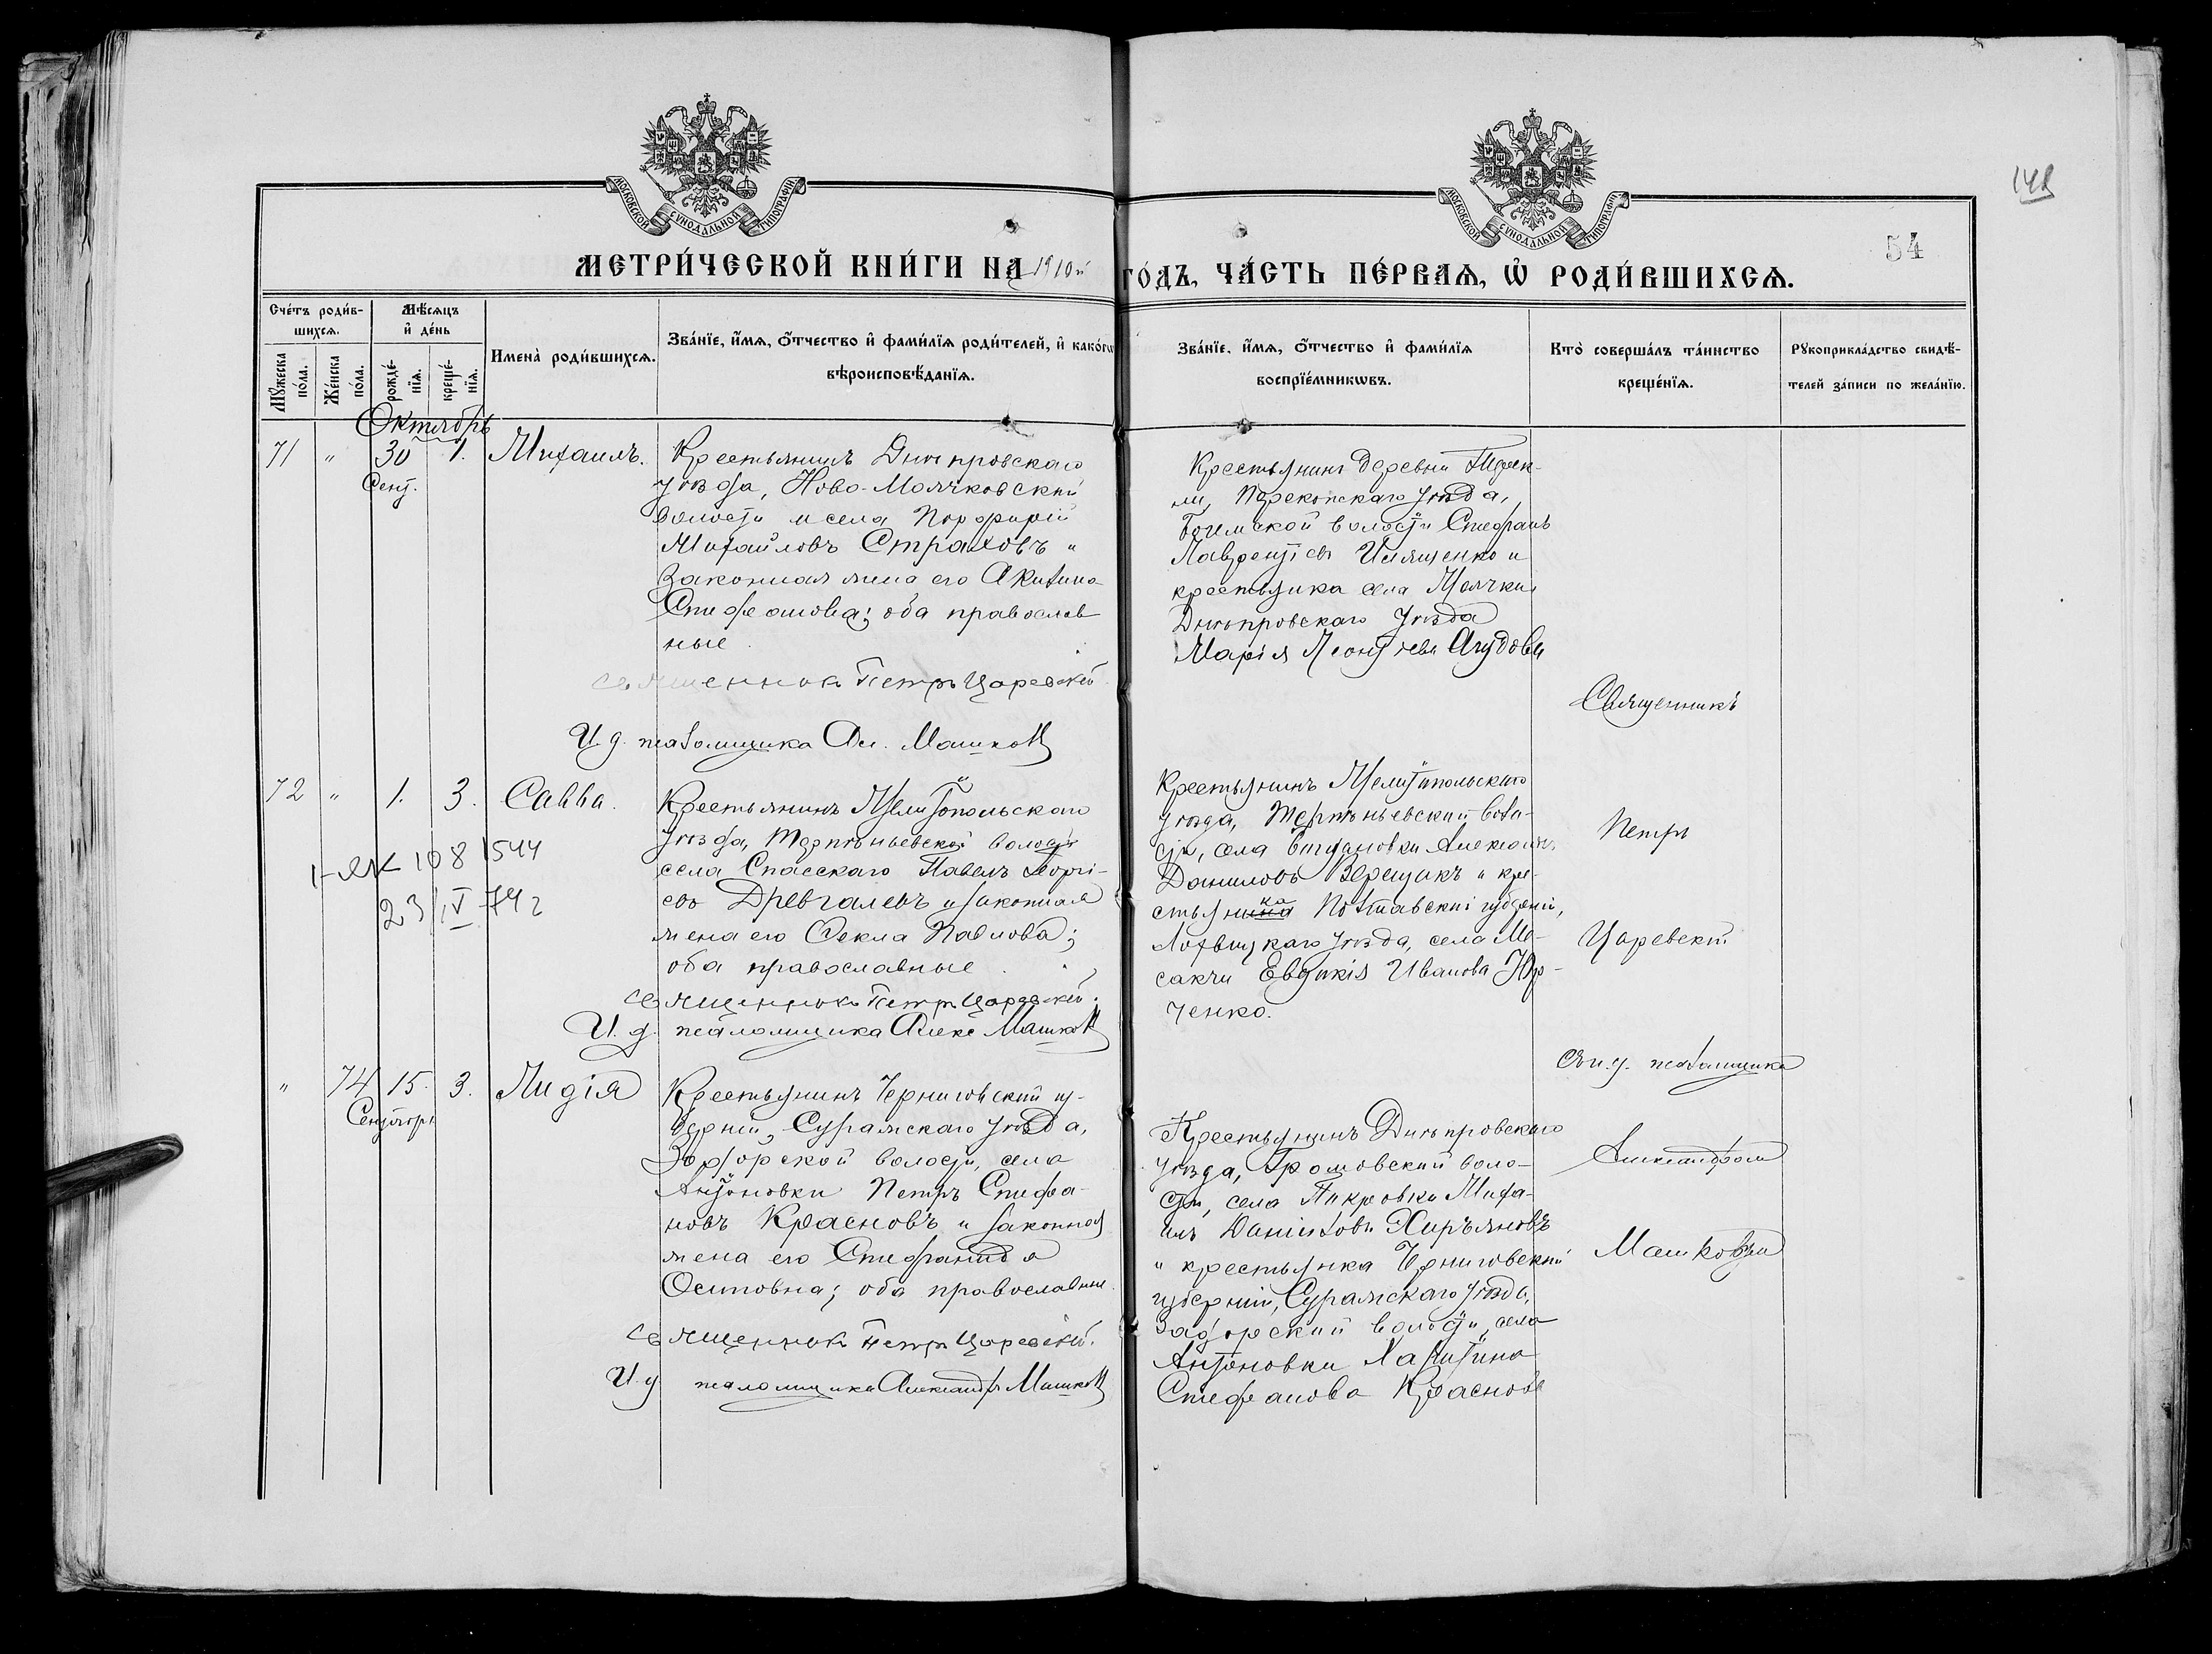 МОСКОВСКОЙ СѴНОДАЛЬНОЙ ТИПОГРАФІИ
МОСКОВСКОЙ СѴНОДАЛЬНОЙ ТИПОГРАФІИ
54
МЕТРИ́ЧЕСКОЙ КНИ́ГИ НА 1910й ГО́ДЪ, ЧА́СТЬ ПЕ́РВАѦ, Ѡ҆ РОДИ́ВШИХСѦ.
Сче́тъ роди́вшихсѧ.
Мꙋ́жеска по́ла.
Же́нска по́ла.
Мѣ́сѧцъ и҆ де́нь
рожде́нїѧ.
креще́нїѧ.
Имена̀ роди́вшихсѧ.
Зва́нїе, и҆́мѧ, ѻ҆́тчество и҆ фами́лїѧ роди́телей, и҆ како́гѡ
вѣроисповѣ́данїѧ.
Зва́нїе, и҆́мѧ, ѻ҆́тчество и҆ фами́лїѧ
воспрїе́мникѡвъ.
Кто̀ соверша́лъ та́инство
креще́нїѧ.
Рꙋкоприкла́дство свидѣ́-
телей за́писи по жела́нїю.
Октябрь
71 " 30 1. Михаилъ.
Сент.
Крестьянинъ Днѣпровскаго
уѣзда, Ново-Маячковской
волости и села Порфирій
Михайловъ Страховъ и
законная жена его Акилина
Стефанова; оба православ
ные.
священникъ Петръ Царевскій
И. д. псаломщика Ал. Машков
Крестьянинъ деревни
Перекопскаго уѣзда,
волости Стефанъ
Лаврентіевъ Ильященко и
крестьянка села Маячки
Днѣпровскаго уѣзда
Марія Леонтіева
Священникъ
72 " 1. 3. Савва.
108 1544
23/IV-74 г
Крестьянинъ Мелитопольскаго
уѣзда, Терпѣньевской волости
села Спасскаго Павелъ Георгі-
евъ Древгалевъ и законная
жена его Секла Павлова;
оба православные.
священникъ Петръ Царевскій.
И. д. псаломщика Алекс Машков
Крестьянинъ Мелитопольскаго
уѣзда, Терпѣньевской воло-
сти, села Богдановки Александръ
Даниловъ Верещакъ и кре-
стьянка Полтавской губерніи,
Лохвицкаго уѣзда, села Ме-
сакчи Евдокія Иванова Юр-
ченко.
Петръ
Царевскій
съ и. д. псаломщика
" 74 15. 3. Лидія
Сентября
Крестьянинъ Черниговской гу-
берніи, Суражскаго уѣзда,
волости, села
Антоновки Петръ Стефа-
новъ Красновъ и законная
жена его Стефанида
Осиповна; оба православные.
священникъ Петръ Царевскій.
И. д. псаломщика Александръ Машков
Крестьянинъ Днѣпровскаго
уѣзда, Громовской воло-
сти, села Покровки Миха-
илъ Даніиловъ Хирьяновъ
и крестьянка Черниговской
губерніи, Суражскаго уѣзда,
волости, села
Антоновки
Стефанова Краснова
Александромъ
Машковымъ